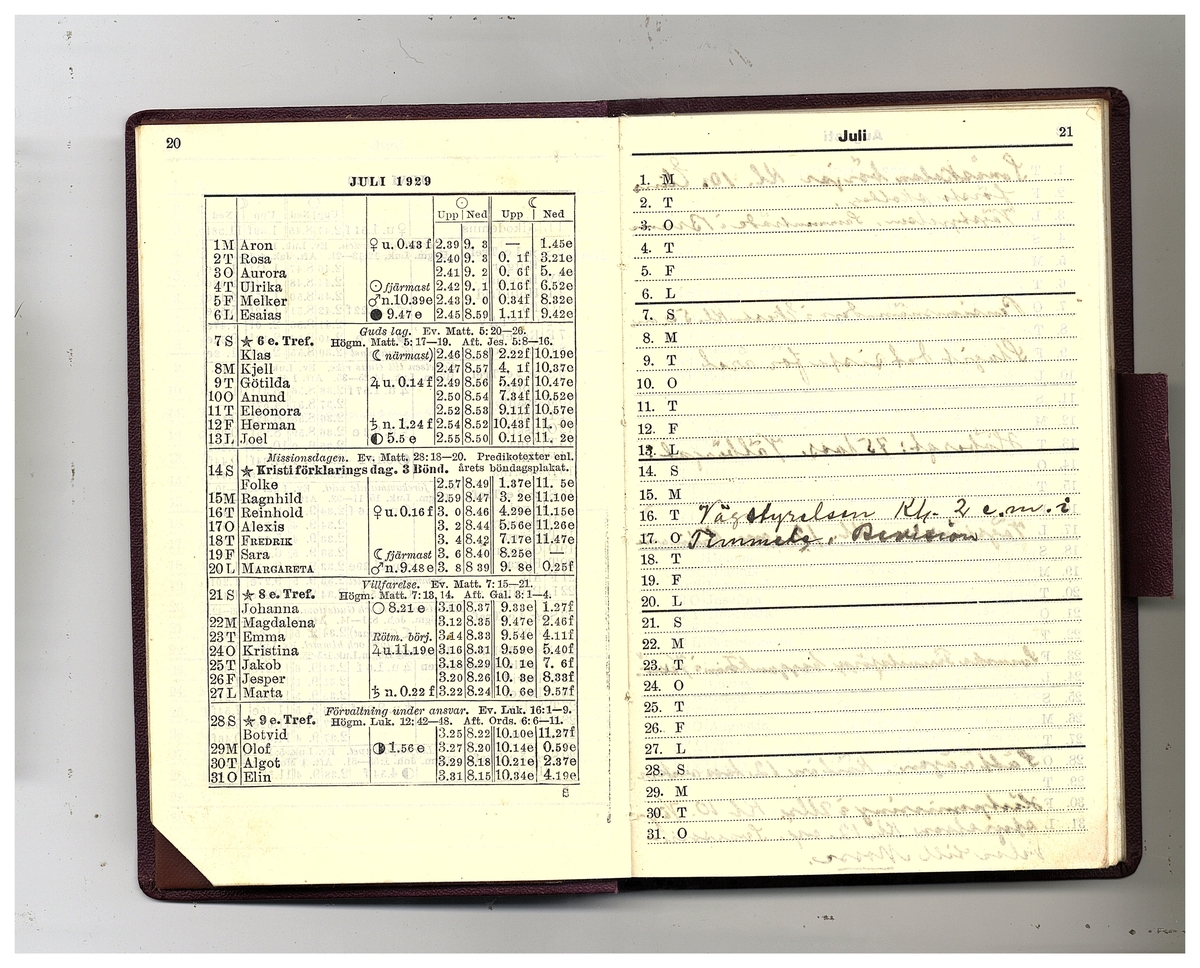 20
JULI 1929
☉ ☾
Upp Ned Upp Ned
1 M Aron ♀ u. 0.43 f 2.39 9. 3 — 1.45e
2 T Rosa 2.40 9. 3 0. 1f 3.21e
3 O Aurora 2.41 9. 2 0. 6f 5. 4e
4 T Ulrika ☉ fjärmast 2.42 9. 1 0.16f 6.52e
5 F Melker ♂ n. 10.39e 2.43 9. 0 0.34f 8.32e
6 L Esaias ● 9.47 e 2.45 8.59 1.11f 9.42e
Guds lag. Ev. Matt. 5: 20—26.
7 S ★ 6 e. Tref. Högm. Matt. 5: 17—19. Aft. Jes. 5: 8—16.
Klas ☾ närmast) 2.46 8.58 2.22f 10.19e
8 M Kjell 2.47 8.57 4. 1f 10.37e
9 T Götilda ♃ u. 0.14 f 2.49 8.56 5.49f 10.47e
10 O Anund 2.50 8.54 7.34f 10.52e
11 T Eleonora 2.52 8.53 9.11f 10.57e
12 F Herman ♄ n. 1.24 f 2.54 8.52 10.43f 11. 0e
13 L Joel ◐ 5.5 e 2.55 8.50 0.11e 11. 2e
Missionsdagen. Ev. Matt. 28: 18—20. Predikotexter enl.
14 S ★ Kristi förklarings dag. 3 Bönd. årets böndagsplakat.
Folke 2.57 8.49 1.37e 11. 5e
15 M Ragnhild 2.59 8.47 3. 2e 11.10e
16 T Reinhold ♀ u. 0.16 f 3. 0 8.46 4.29e 11.15e
17 O Alexis 3. 2 8.44 5.56e 11.26e
18 T FREDRIK 3. 4 8.42 7.17e 11.47e
19 F Sara ☾ fjärmast 3. 6 8.40 8.25e —
20 L MARGARETA ♂ n. 9.48 e 3. 8 8 39 9. 8e 0.25f
Villfarelse. Ev. Matt. 7: 15—21.
21 S ★ 8 e. Tref. Högm. Matt. 7: 13, 14. Aft. Gal. 3: 1—4.
Johanna ○ 8.21 e 3.10 8.37 9.33e 1.27f
22 M Magdalena 3.12 8.35 9.47e 2.46f
23 T Emma Rötm. börj. 3.14 8.33 9.54e 4.11f
24 O Kristina ♃ u. 11.19e 3.16 8.31 9.59e 5.40f
25 T Jakob 3.18 8.29 10. 1e 7. 6f
26 F Jesper 3.20 8.26 10. 3e 8.33f
27 L Marta ♄ n. 0.22 f 3.22 8.24 10. 6e 9.57f
Förvaltning under ansvar. Ev. Luk. 16: 1—9.
28 S ★ 9 e. Tref. Högm. Luk. 12: 42—48. Aft. Ords. 6: 6—11.
Botvid 3.25 8.22 10.10e 11.27f
29 M Olof ◑ 1.56 e 3.27 8.20 10.14e 0.59e
30 T Algot 3.29 8.18 10.21e 2.37e
31 O Elin 3.31 8.15 10.34e 4.19e
Juli 21
1. M
2. T
3. O
4. T
5. F
6. L
7. S
8. M
9. T
10. O
11. T
12. F
13. L
14. S
15. M
16. T Vägstyrelsen Kl. 2 e.m. i
17. O Timmele. Revision
18. T
19. F
20. L
21. S
22. M
23. T
24. O
25. T
26. F
27. L
28. S
29. M
30. T
31. O